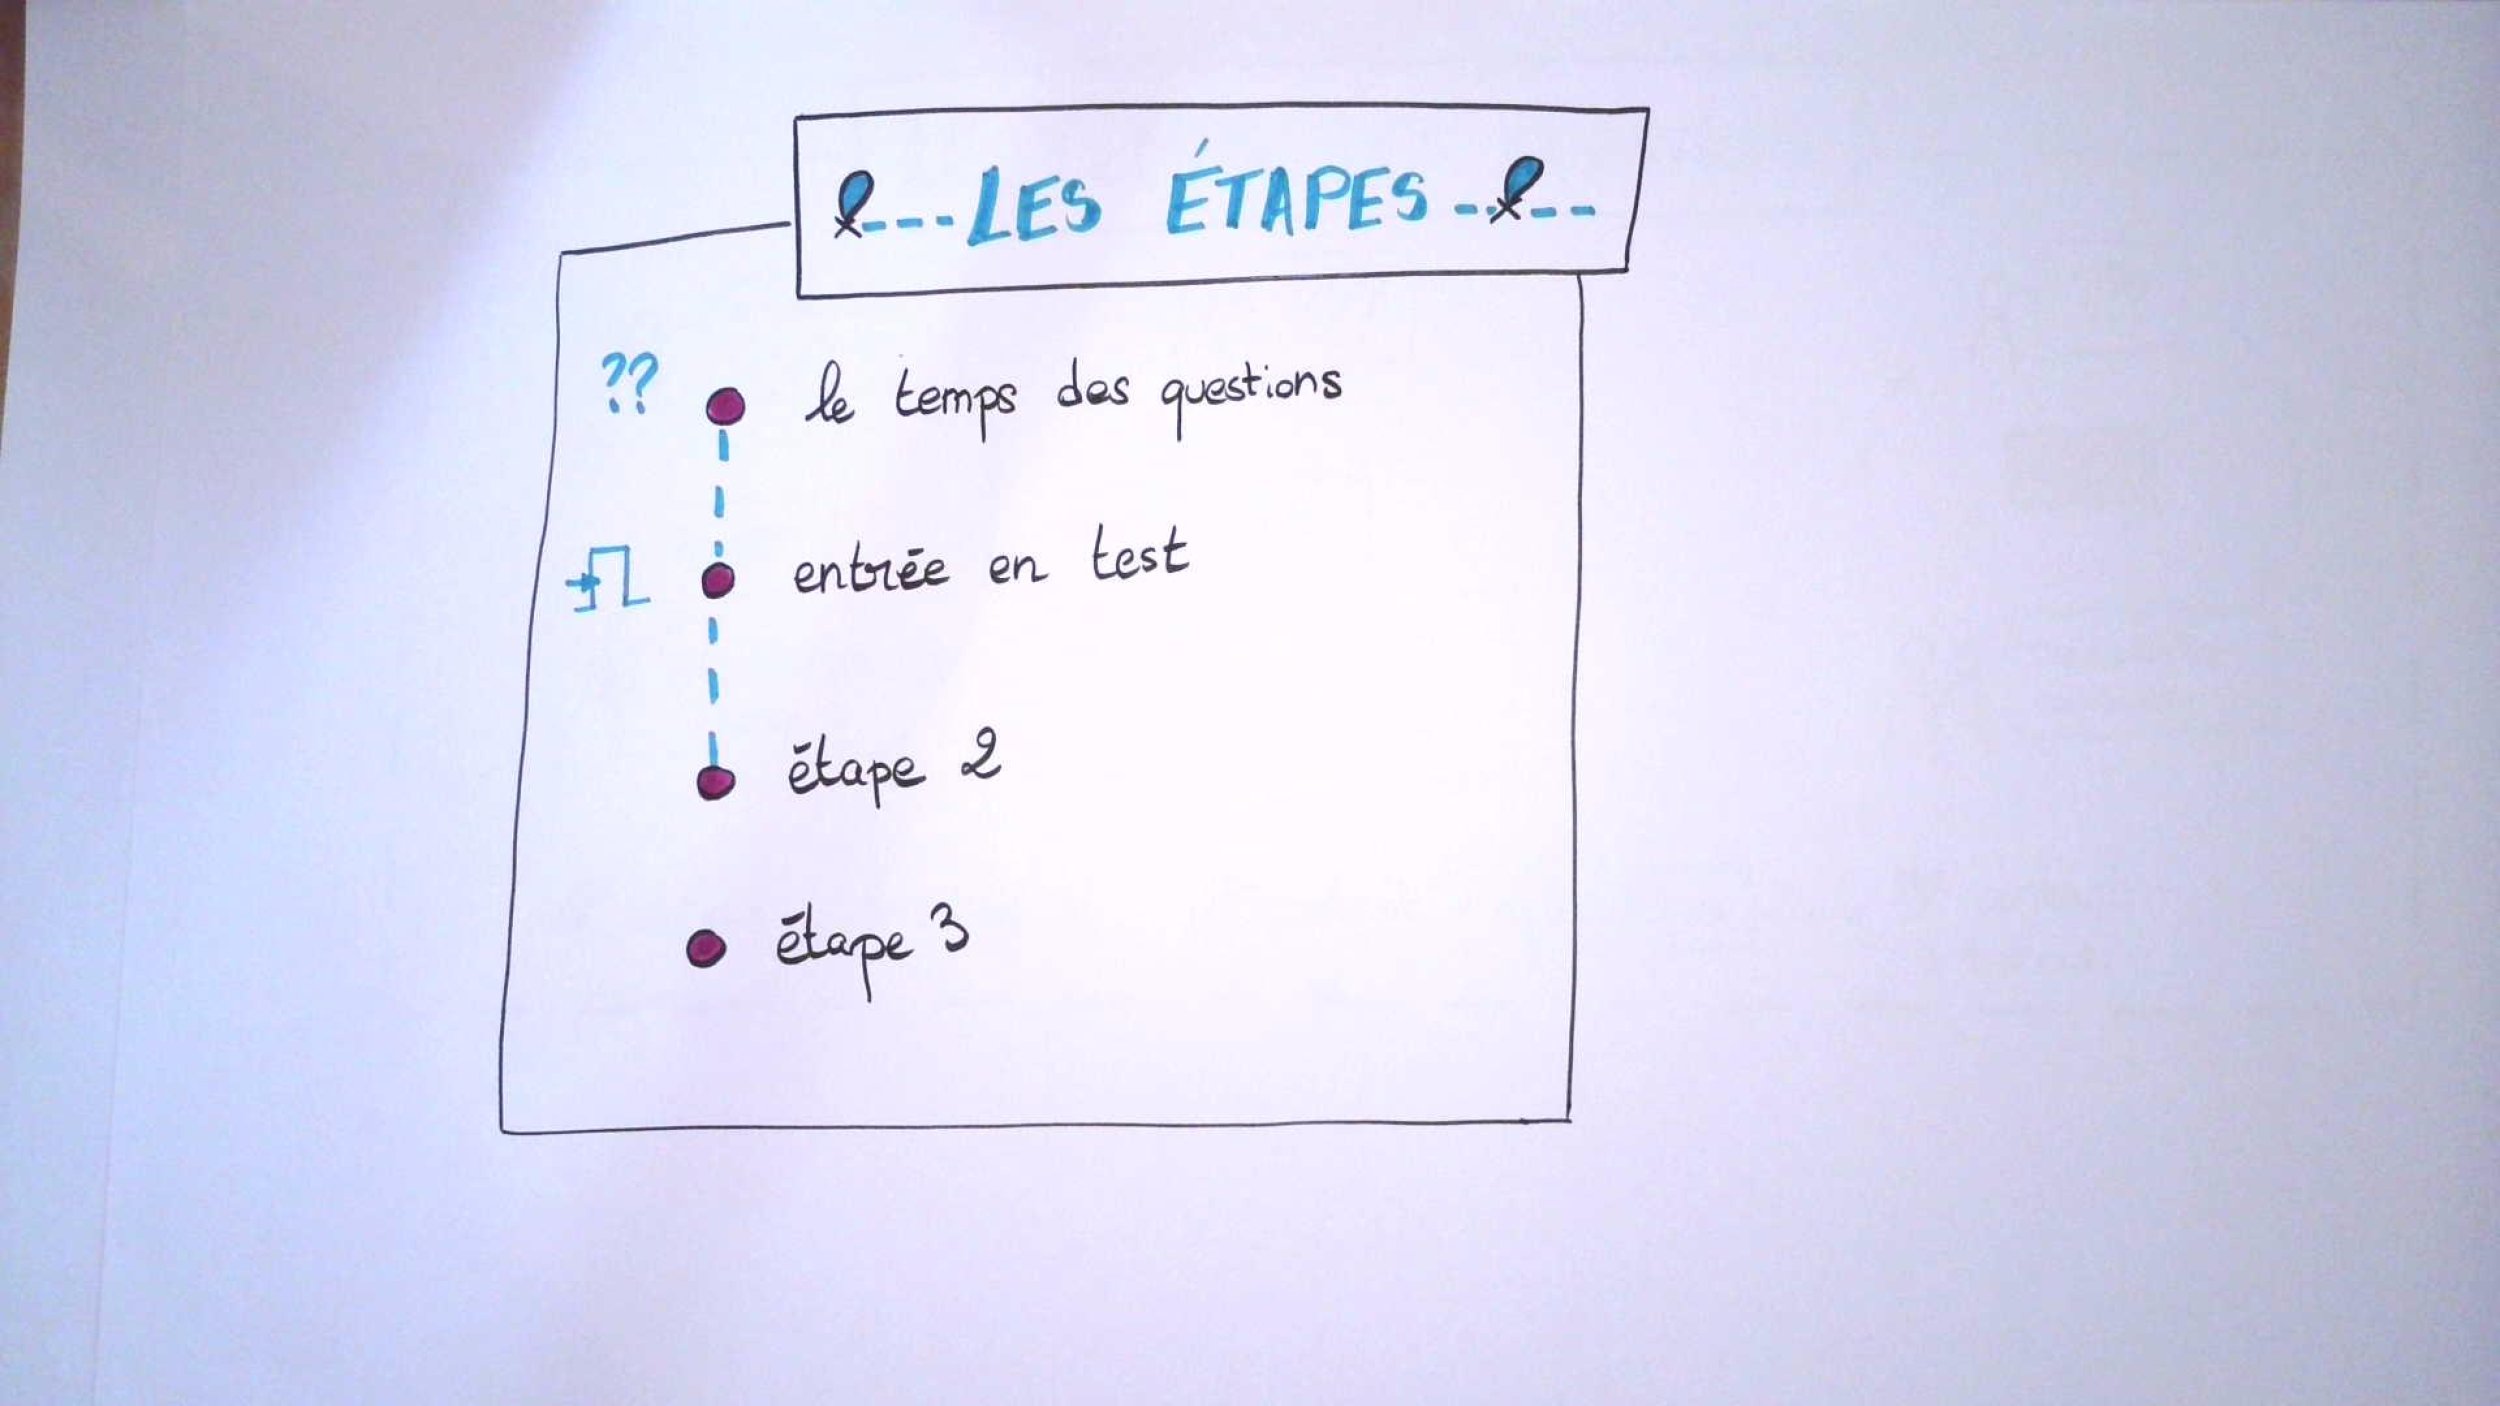 LES ÉTAPES
?? le temps des questions
entrée en test
étape 2
étape 3